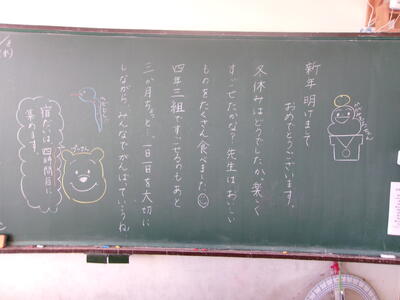 新年明けまして
おめでとうございます。
冬休みはどうでしたか。楽しく
すごせたかな？先生は、おいしい
ものをたくさん食べました
四年三組ですごせるのもあと
三か月ちょっと…一日一日を大切に
しながら、みんなでがんばっていこうね
宿だいは、四時間目に
集めます。